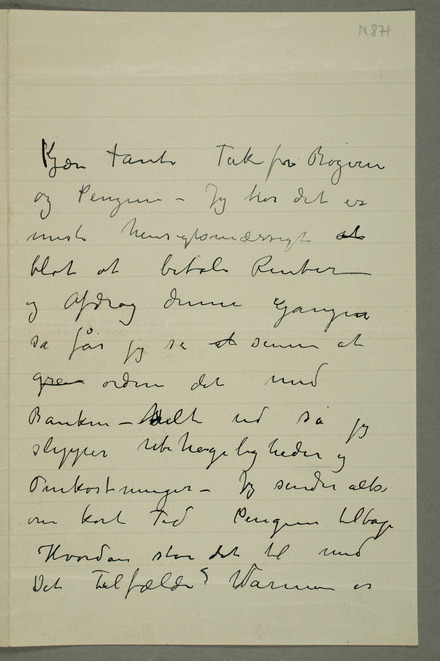 N 871
Kjære Tante Tak for Bogerne
og Pengene – Jeg tror det er
mest hensigtsmæssigt at
blot at betale Renter
og Afdrag denne Gangen
så får jeg se at senere at
ordne det med
Banken – helt ud så jeg
slipper Ubehageligheder og
Omkostninger – Jeg sender altså
om kort Tid Pengene tilbage
Hvordan står det til med
Det Tilfælde? Varmen er